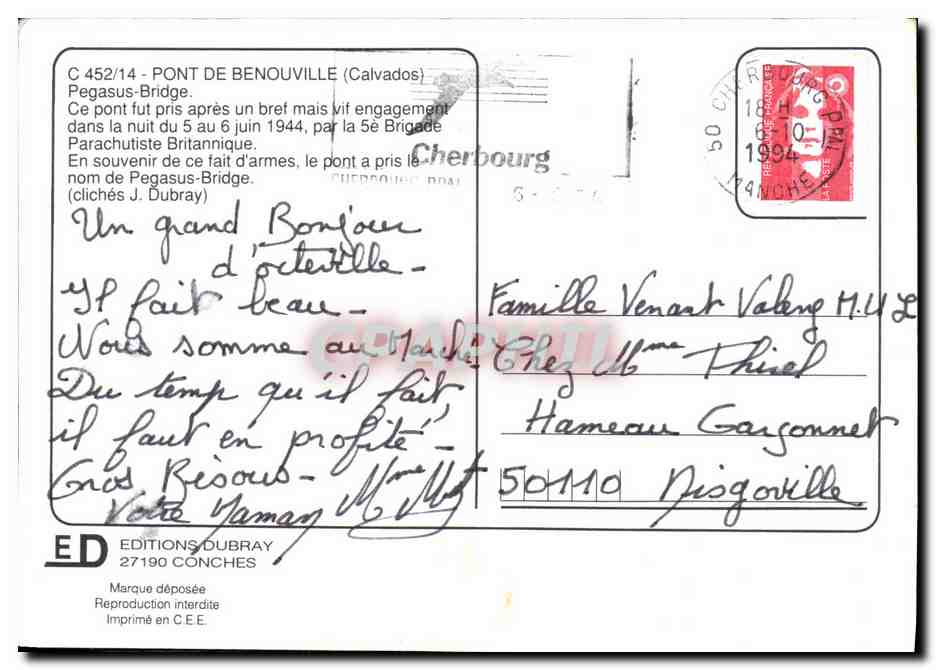 C 452/14 - PONT DE BENOUVILLE (Calvados)
Pegasus-Bridge.
Ce pont fut pris après un bref mais vif engagement
dans la nuit du 5 au 6 juin 1944, par la 5è Brigade
Parachutiste Britannique.
En souvenir de ce fait d'armes, le pont a pris le
nom de Pegasus-Bridge.
(clichés J. Dubray)
Cherbourg
CHERBOURG PPAL
50 CHERBOURG PPAL
18 H
6-10
1994
MANCHE
REPUBLIQUE FRANÇAISE
LA POSTE
Un grand Bonjour
d'octeville -
Il fait beau -
Nous somme au Marché -
Du temp qu'il fait,
il faut en profité -
Gros Bisous -
Votre Maman Mme
Famille Venant Valeng M.U L
Chez Mme Thirel
Hameau Garçonnet
50110 Digoville
CPAPHIL
ED
EDITIONS DUBRAY
27190 CONCHES
Marque déposée
Reproduction interdite
Imprimé en C.E.E.